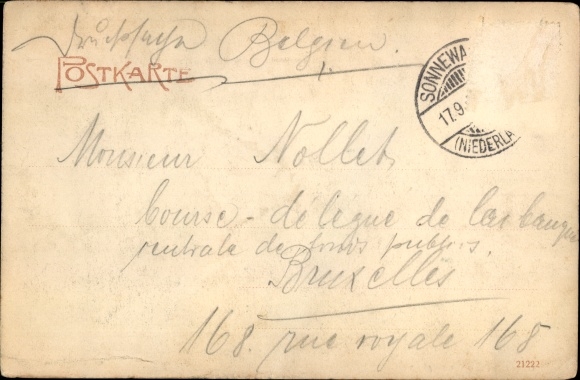 Drucksache Belgien.
POSTKARTE
SONNEWA
17.9.
(NIEDERLA
Monsieur Nollet
Course - délégue de la banque
centrale de fonds publics.
Bruxelles
168. rue royale 168
21222